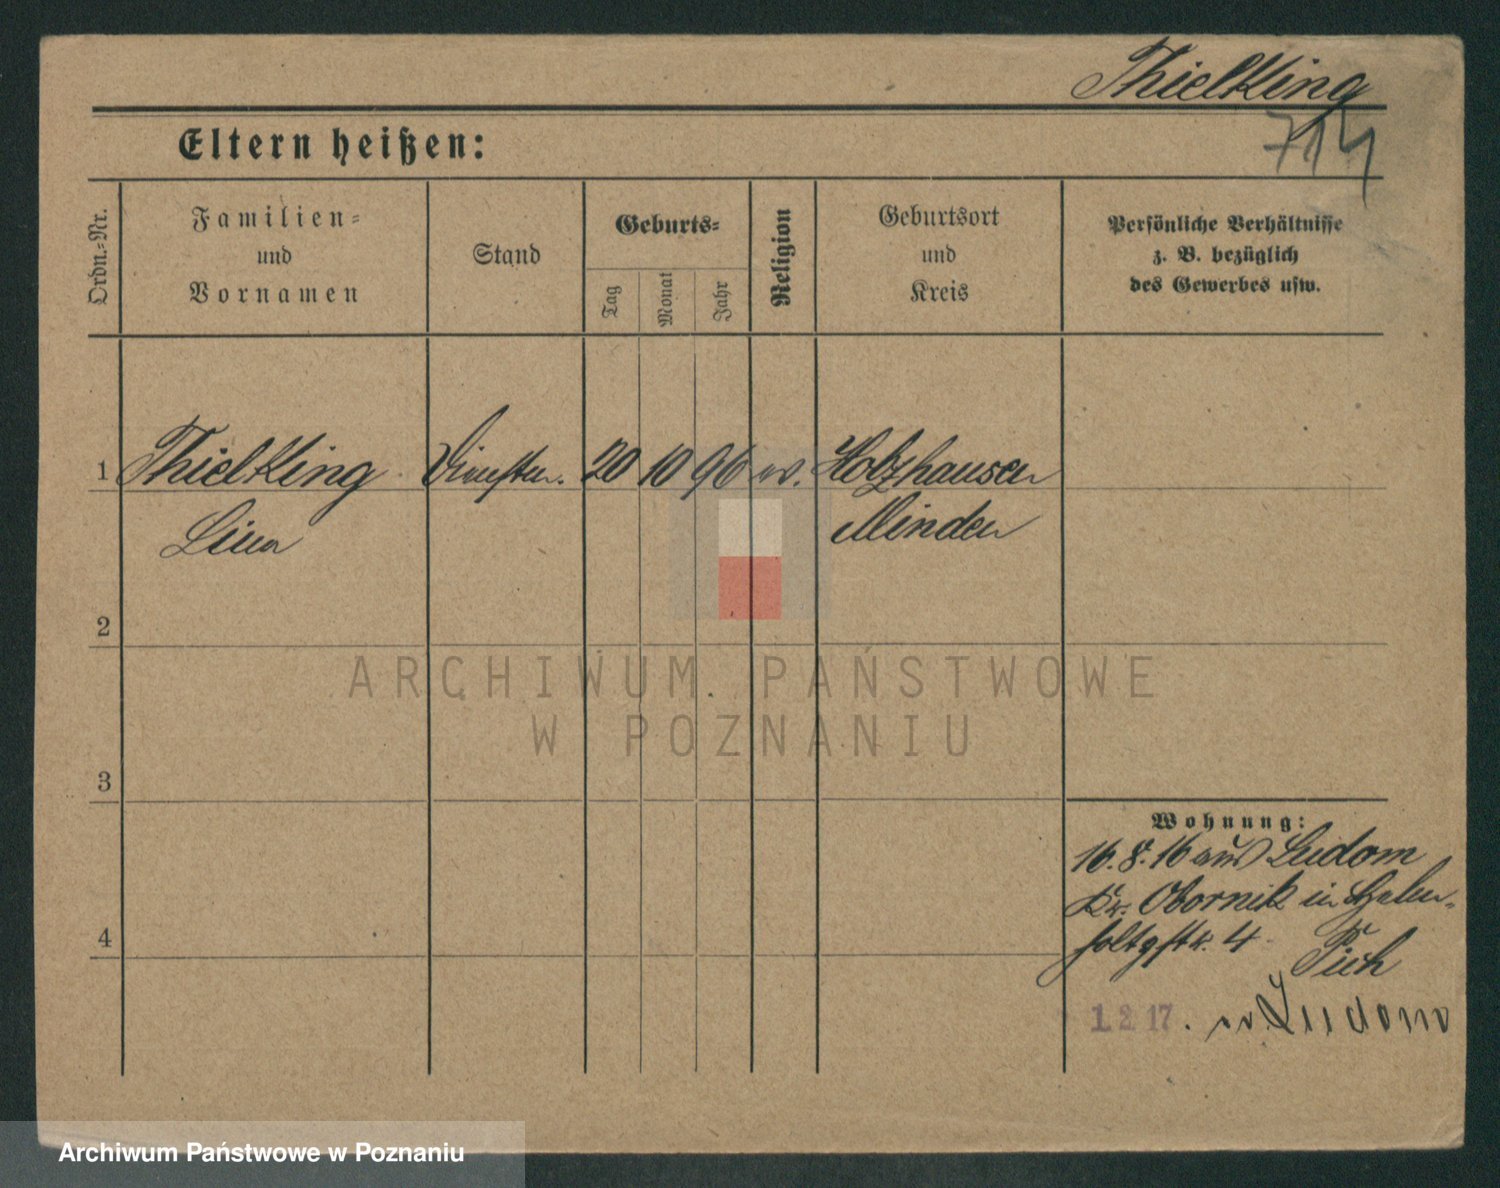 Thielking
714
Eltern heißen:
Ordn.-Nr.
Familien-
und
Vornamen
Stand
Geburts-
Tag
Monat
Jahr
Religion
Geburtsort
und
Kreis
Persönliche Verhältnisse
z. B. bezüglich
des Gewerbes usw.
1 Thielking Dienstm. 20 10 96 ev. Holzhausen
Lina Minden
2
3
4
Wohnung:
16.8.16 aus Ludom
Kr. Obornik in
4
1 2 17. n. Ludom
ARCHIWUM PAŃSTWOWE
W POZNANIU
Archiwum Państwowe w Poznaniu